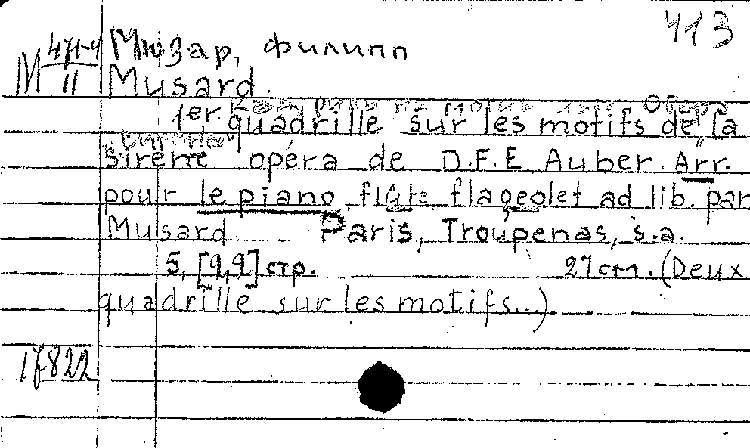 413
M 471-4 Мюзар, филипп
II Musard.
1er quadrille sur les motifs de la
sirène opéra de D.F.E Auber. Arr.
pour le piano flûte flageolet ad lib. par
Musard Paris, Troupenas, s.a.
5, [9,9] стр. 27 cm. (Deux
quadrille sur les motifs...)
17822